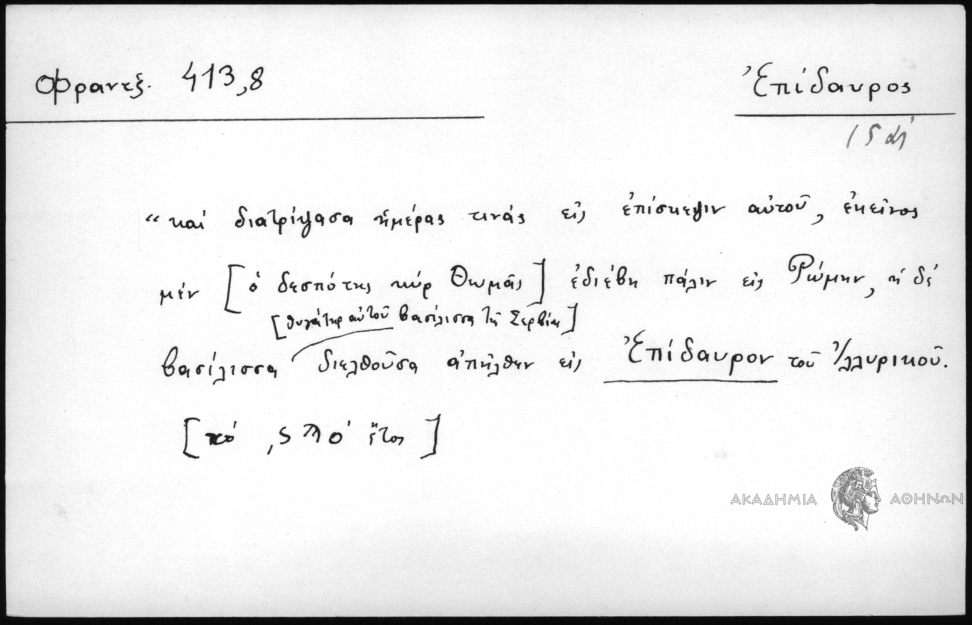 Φραντζ. 413,8
Ἐπίδαυρος
“ καί διατρίψασα ἡμέρας τινάς εἰς ἐπίσκεψιν αὐτοῦ, ἐκεῖνος
μέν [ὁ δεσπότης κύρ Θωμᾶς] ἐδιέβη πάλιν εἰς Ῥώμην, ἡ δέ
[θυγάτηρ αὐτοῦ βασίλισσα τῆς Σερβίας]
βασίλισσα διελθοῦσα ἀπῆλθεν εἰς Ἐπίδαυρον τοῦ Ἰλλυρικοῦ.
[τό ,ϛϡο' ἔτος]
ΑΚΑΔΗΜΙΑ ΑΘΗΝΩΝ